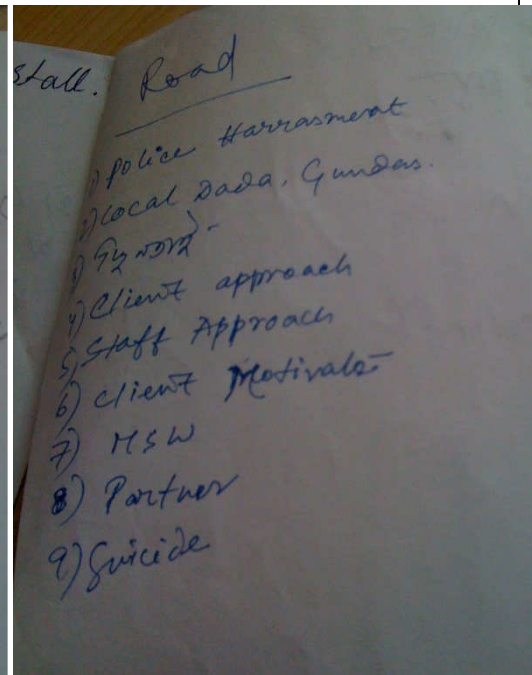 stall.
Road
1) police Harrasment
2) Local Dada, Gundas.
3)
4) Client approach
5) Staff Approach
6) Client Motivate
7) MSW
8) Partner
9) Suicide